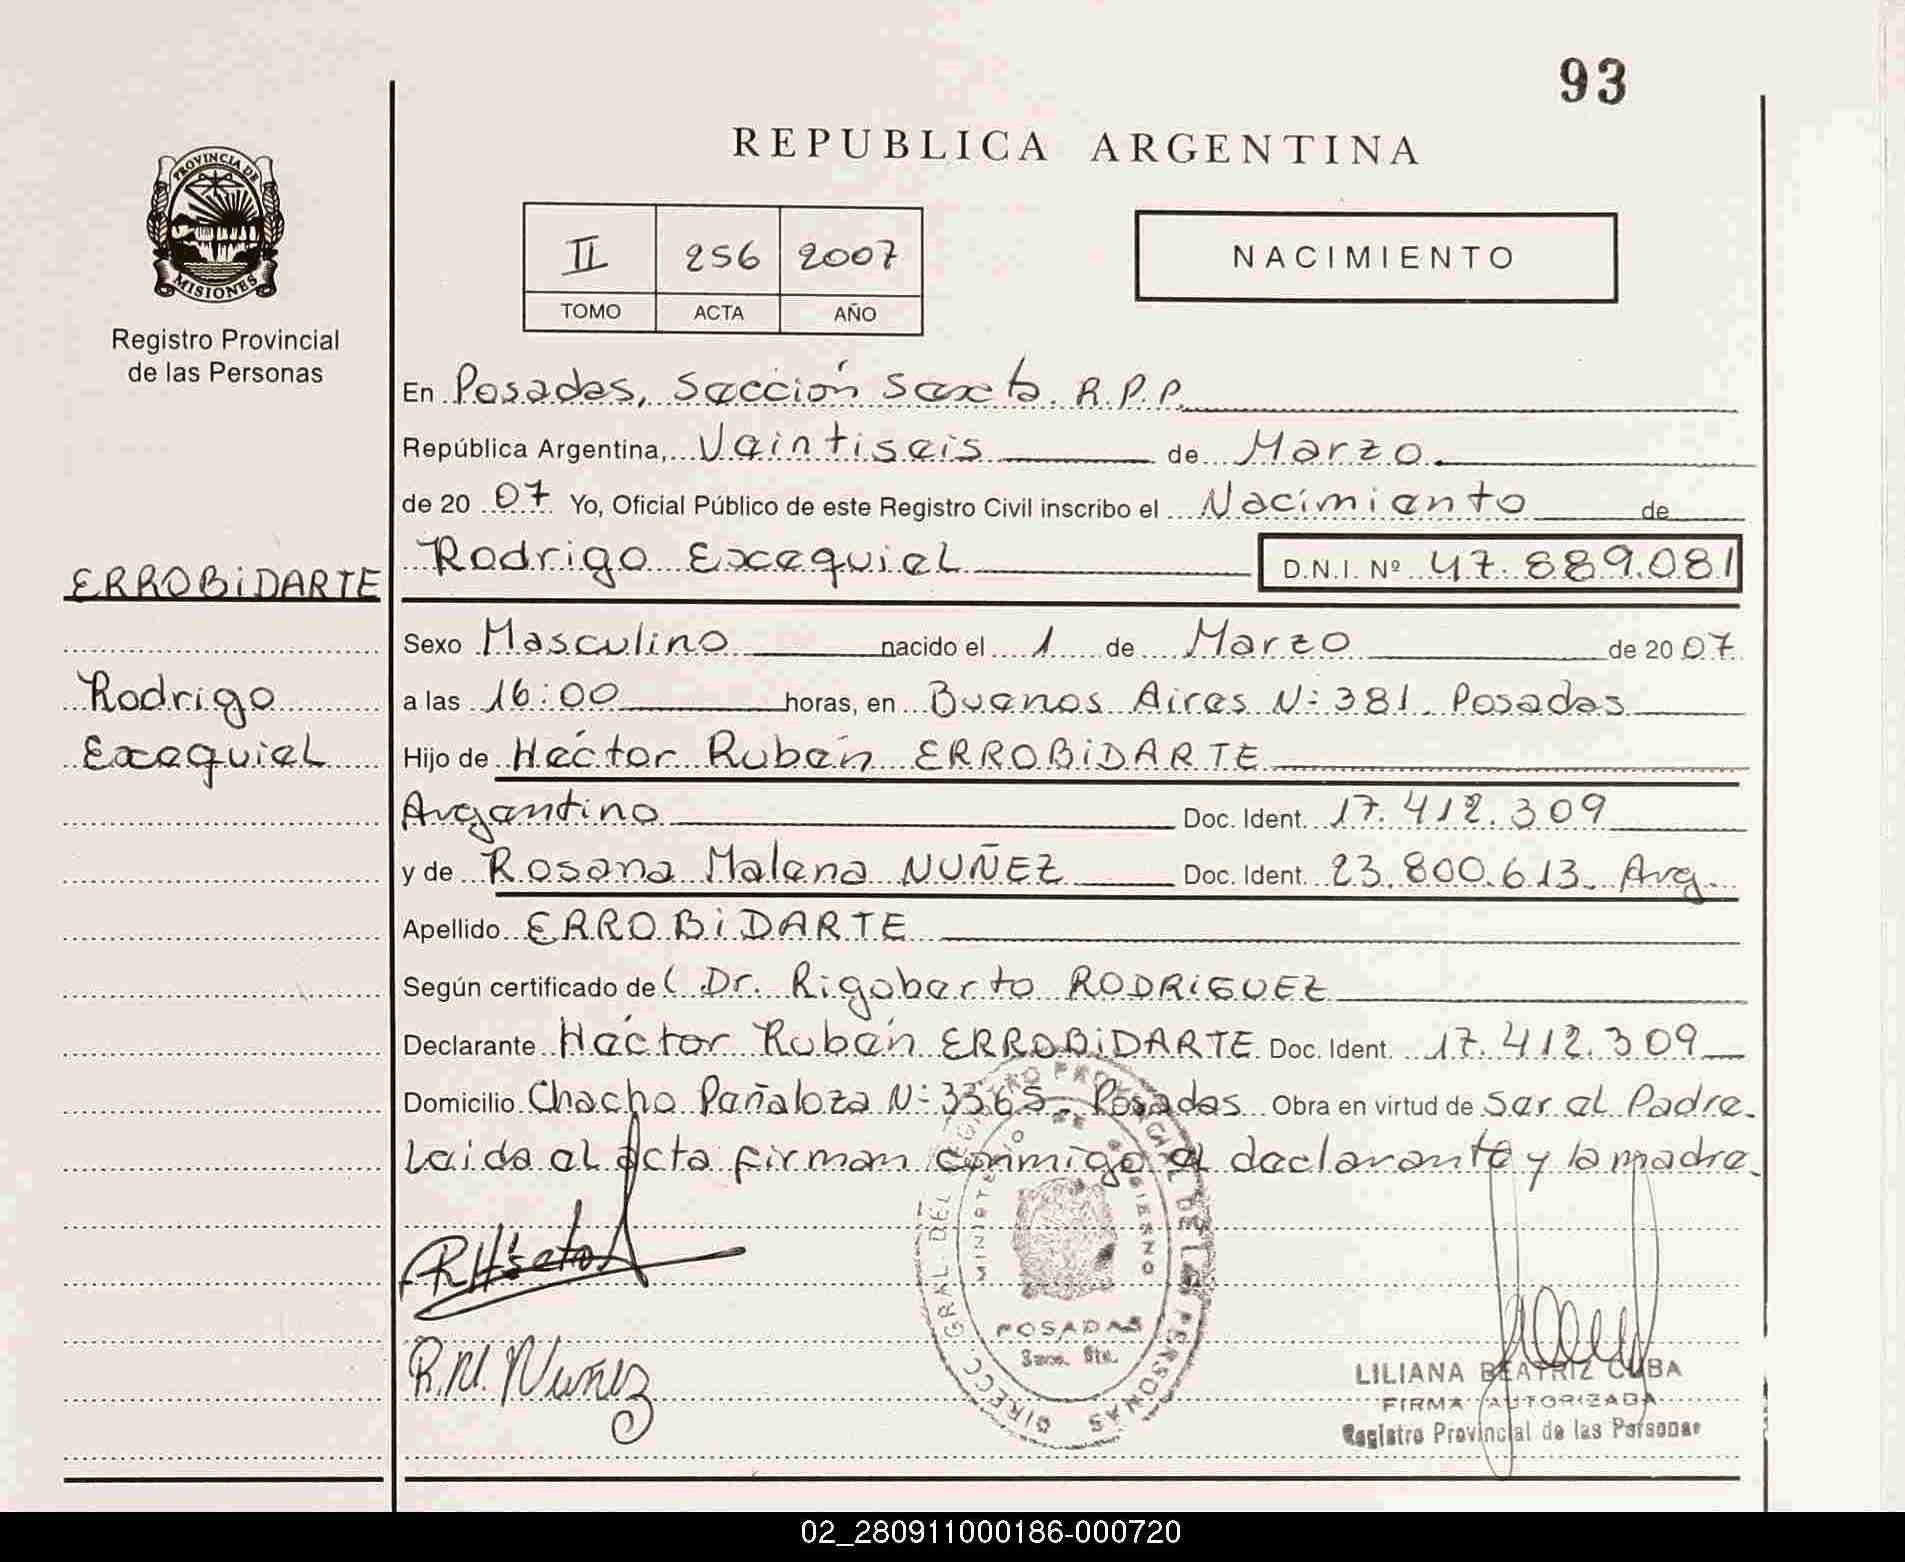 93
REPUBLICA ARGENTINA
PROVINCIA DE
MISIONES
Registro Provincial
de las Personas
II 256 2007
TOMO ACTA AÑO
NACIMIENTO
En Posadas, Sección Sexta. R.P.P.
República Argentina, Veintiseis de Marzo
de 20 07 Yo, Oficial Público de este Registro Civil inscribo el Nacimiento de
Rodrigo Exequiel D.N.I. Nº 47.889.081
ERROBiDARTE
Rodrigo
Exequiel
Sexo Masculino nacido el 1 de Marzo de 20 07
a las 16:00 horas, en Buenos Aires N: 381. Posadas
Hijo de Héctor Rubén ERROBiDARTE
Argentino Doc. Ident. 17.412.309
y de Rosana Malena NUÑEZ Doc. Ident. 23.800.613. Arg.
Apellido ERROBiDARTE
Según certificado de ( Dr. Rigoberto RODRiGUEZ
Declarante Héctor Rubén ERROBiDARTE Doc. Ident. 17.412.309
Domicilio Chacho Peñaloza N: 3365. Posadas Obra en virtud de Ser el Padre.
Leida el acta firman conmigo el declarante y la madre.
DIRECC. GRAL. DEL REGISTRO PROVINCIAL DE LAS PERSONAS
MINISTERIO DE GOBIERNO
POSADAS
Secc. 6ta.
R.M. Nuñez
LILIANA BEATRIZ CUBA
FIRMA AUTORIZADA
Registro Provincial de las Personas
02_280911000186-000720